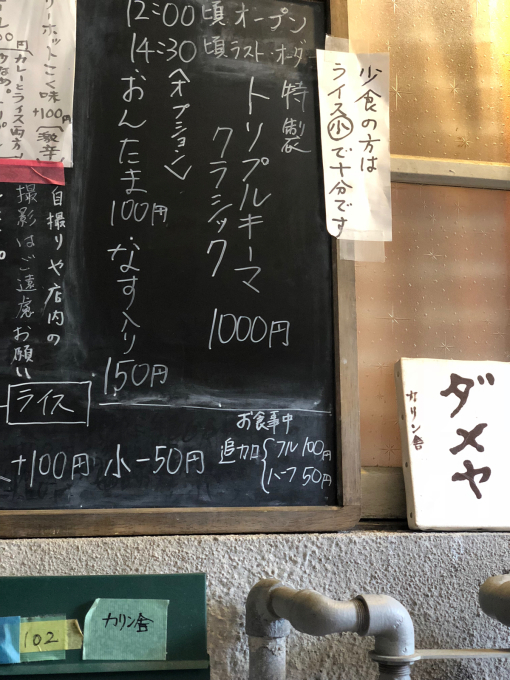 12:00頃オープン
14:30頃ラスト・オーダー
特製
トリプルキーマ
クラシック
1000円
〈オプション〉
おんたま
100円
・なす入り
150円
少食の方は
ライス小で十分です
リーホットこく味
+100円(激辛)
カレーとライス両方
自撮りや店内の
撮影はご遠慮お願い
ライス
+100円 小-50円
お食事中
追加
フル100円
ハーフ50円
ダメヤ
カリン舎
102
カリン舎